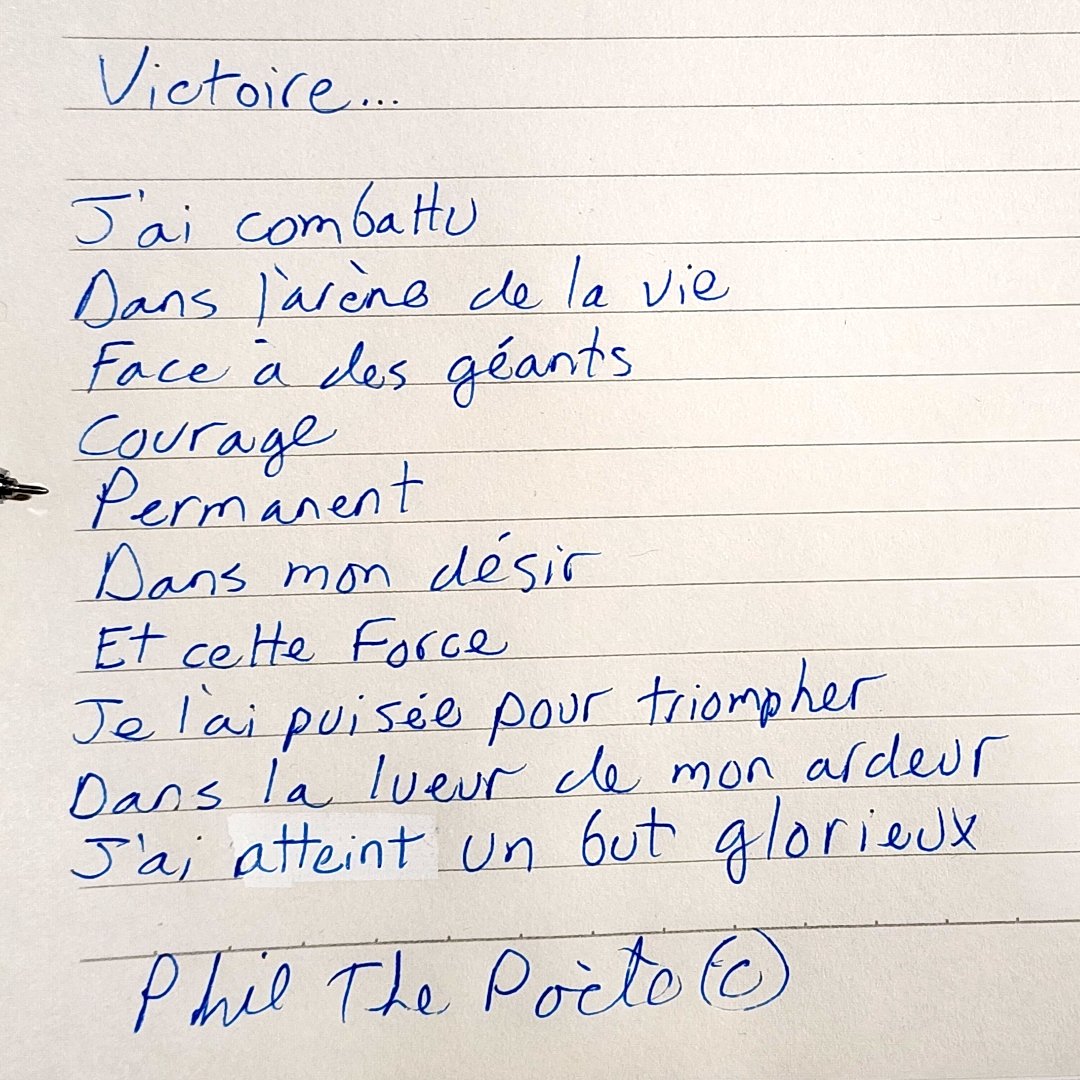 Victoire...
J'ai combattu
Dans l'arène de la vie
Face à des géants
Courage
Permanent
Dans mon désir
Et cette Force
Je l'ai puisée pour triompher
Dans la lueur de mon ardeur
J'ai atteint un but glorieux
Phil The Poète (c)